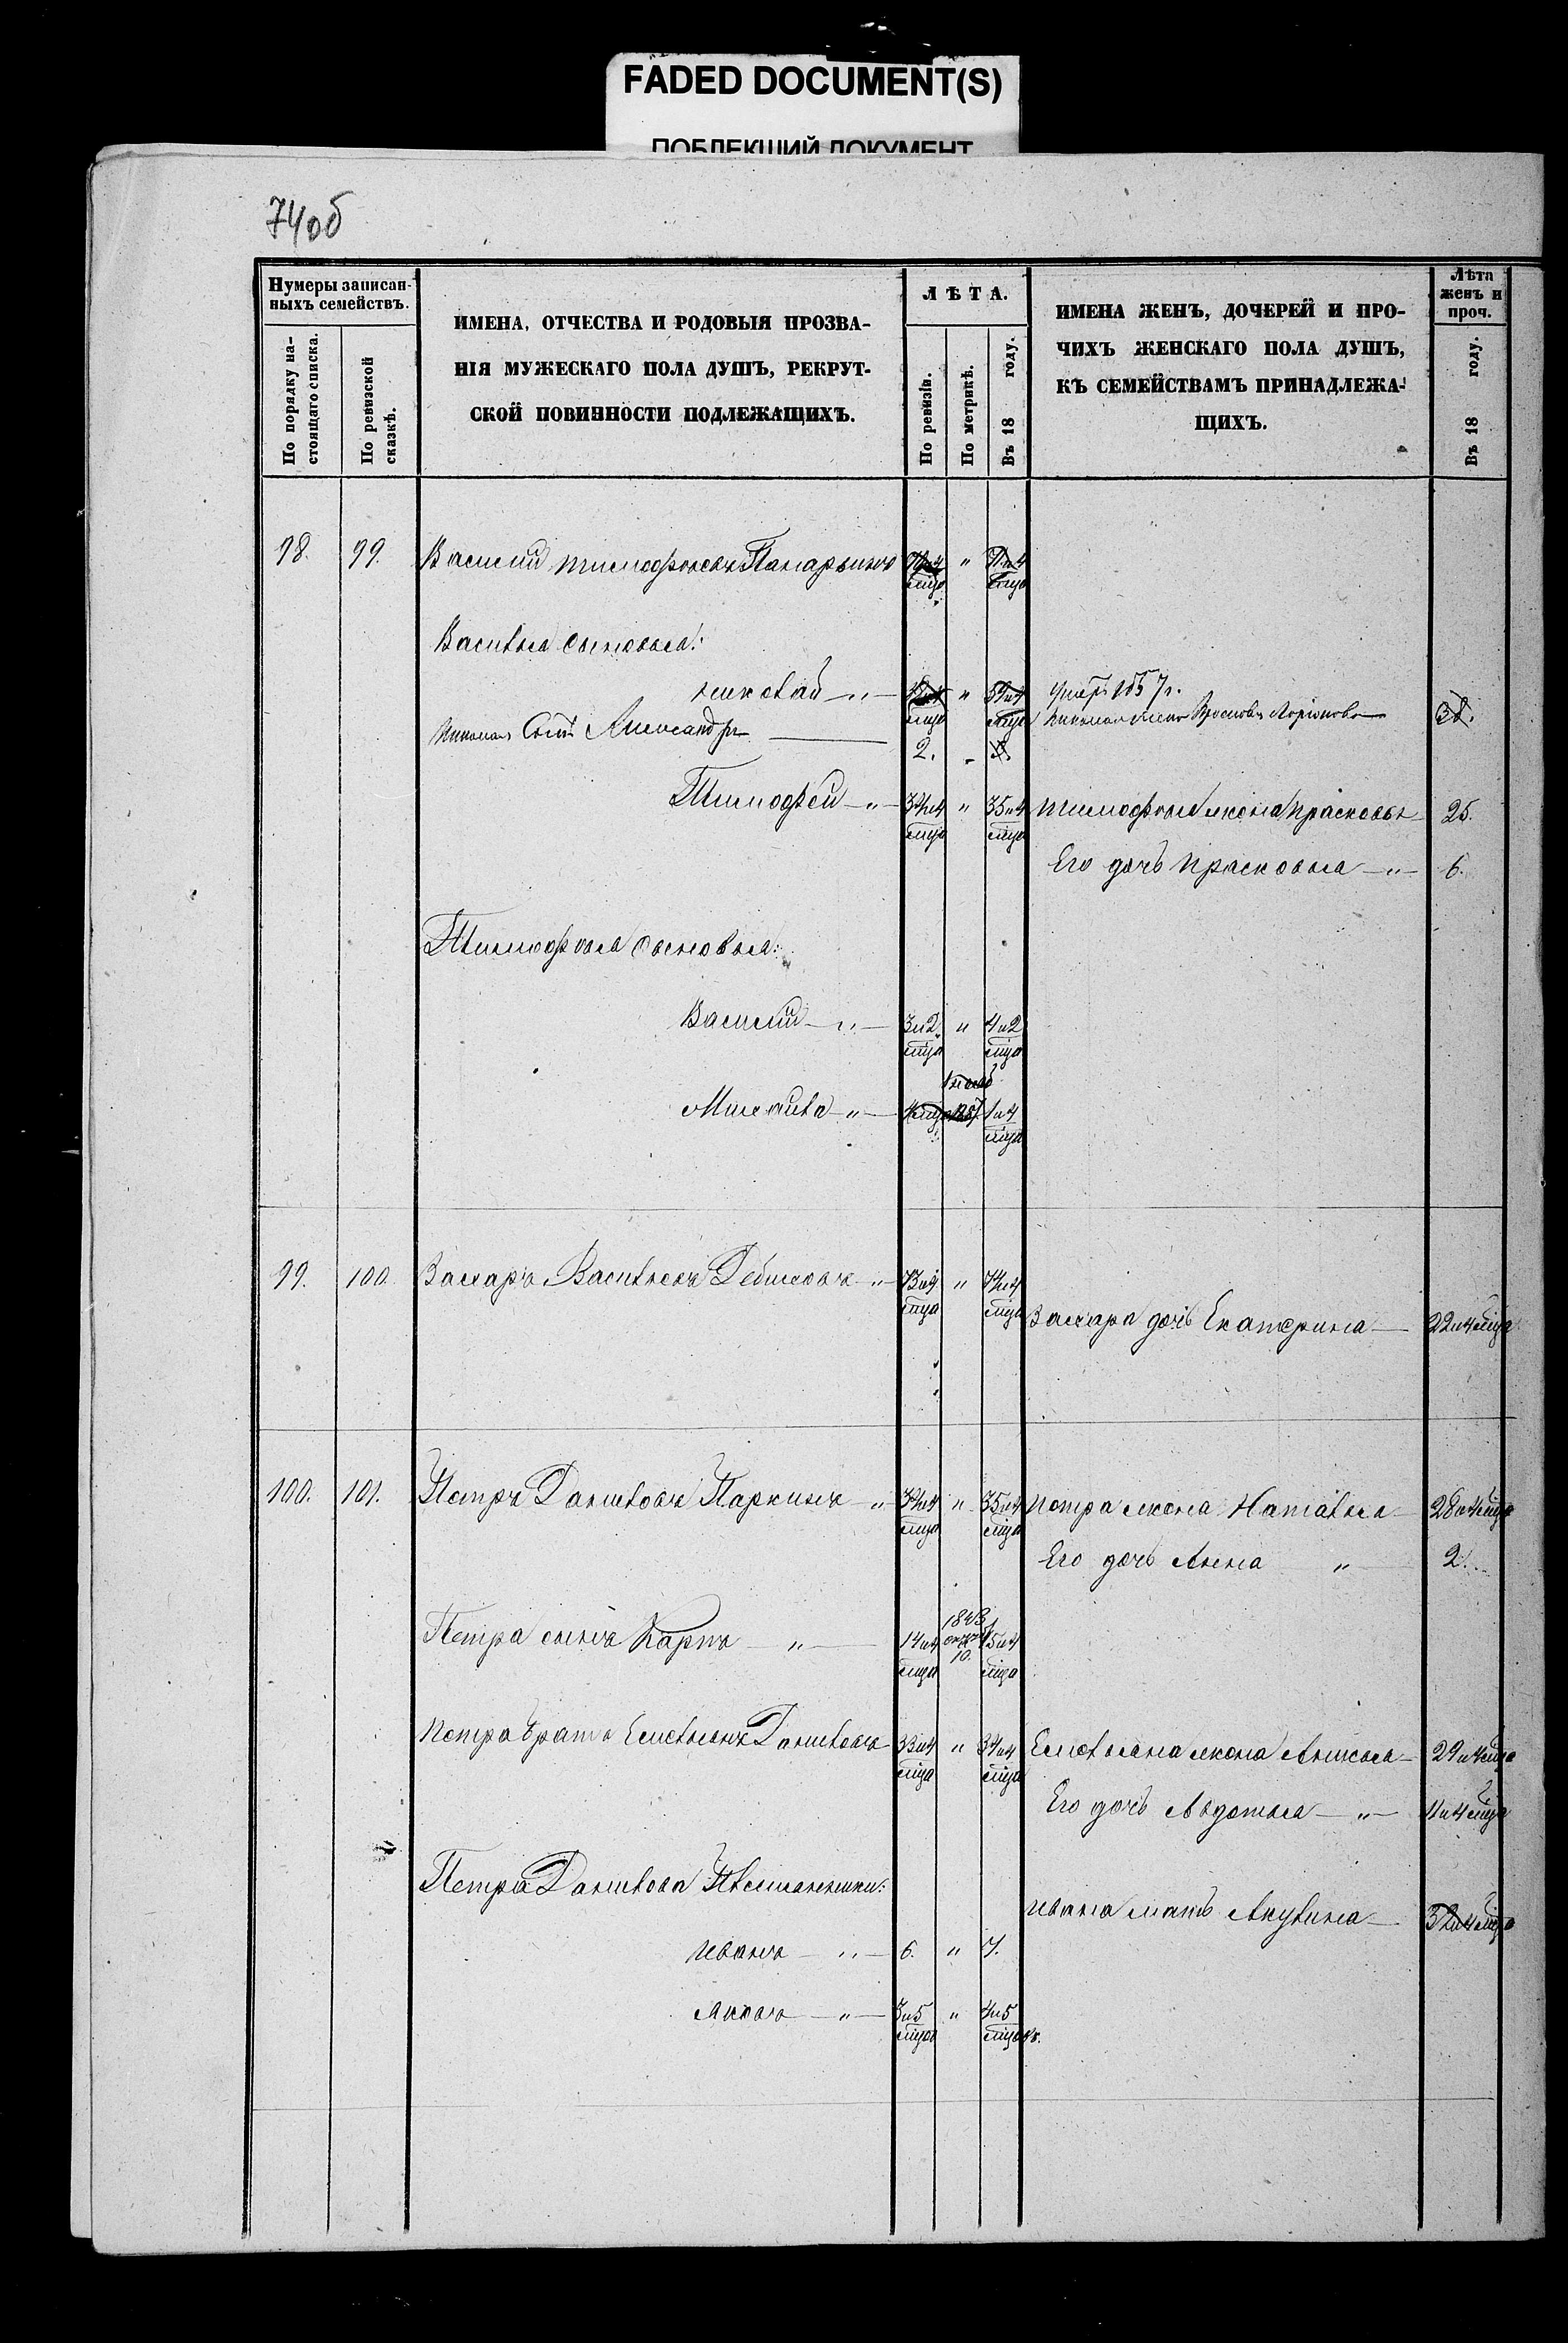 FADED DOCUMENT(S)
ПОБЛЕКШИЙ ДОКУМЕНТ
74об
Нумеры записан-
ныхъ семействъ.
По порядку на-
стоящаго списка.
По ревизской
сказкѣ.
ИМЕНА, ОТЧЕСТВА И РОДОВЫЯ ПРОЗВА-
НІЯ МУЖЕСКАГО ПОЛА ДУШЪ, РЕКРУТ-
СКОЙ ПОВИННОСТИ ПОДЛЕЖАЩИХЪ.
ЛѢТА.
По ревизіи.
По метрикѣ.
Въ 18 году.
ИМЕНА ЖЕНЪ, ДОЧЕРЕЙ И ПРО-
ЧИХЪ ЖЕНСКАГО ПОЛА ДУШЪ,
КЪ СЕМЕЙСТВАМЪ ПРИНАДЛЕЖА-
ЩИХЪ.
Лѣта
женъ и
проч.
Въ 18 году.
98. 99. Василий Тимофѣевъ "
Василья сыновья:
Николай — " — "
умеръ 1857 г.
Николая сынъ Александръ — 2. 38.
Тимофей — " — 34 и 4 мѣца " 35 и 4 мѣца Тимофѣя жена Прасковья 25.
Его дочь Прасковья — " — 6.
Тимофѣя сыновья:
Василий — " — 3 и 2 мѣца " 4 и 2 мѣца
Михаила — " — 1 и 4 мѣца
99. 100. Захаръ Васильевъ — " 73 и 4 мѣца " 74 и 4 мѣца
Захара дочь Екатерина — 22 и 4 мѣца
100. 101. Петръ Даниловъ Паркинъ — " 34 и 4 мѣца " 35 и 4 мѣца Петра жена Наталья — 28 и 4 мѣца
Его дочь Анна " 2.
Петра сынъ Карпъ — " — 14 и 4 мѣца 1843 10. 15 и 4 мѣца
Петра братъ Емельянъ Даниловъ 33 и 4 мѣца " 34 и 4 мѣца Емельяна жена Анисья — 29 и 4 мѣца
Его дочь Авдотья — " — 11 и 4 мѣца
Петра Данилова Племянники:
Ивана мать Акулина — 32 и 4 мѣца
Иванъ — " — 6. " 7.
Яковъ — " — 3 и 5 мѣцов " 4 и 5 мѣцовъ.